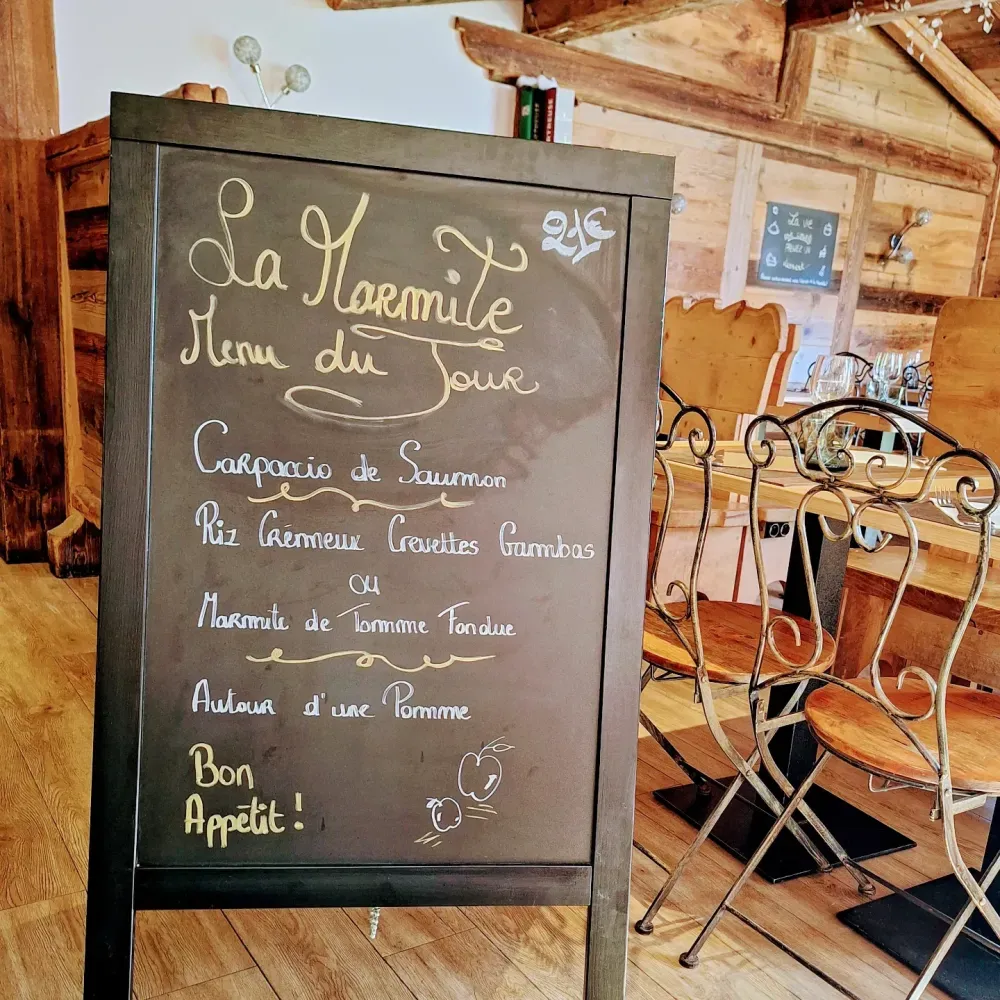 La Marmite
21€
Menu du Jour
Carpaccio de Saumon
Riz Crémeux Crevettes Gambas
ou
Marmite de Tomme Fondue
Autour d'une Pomme
Bon
Appétit !
La vie